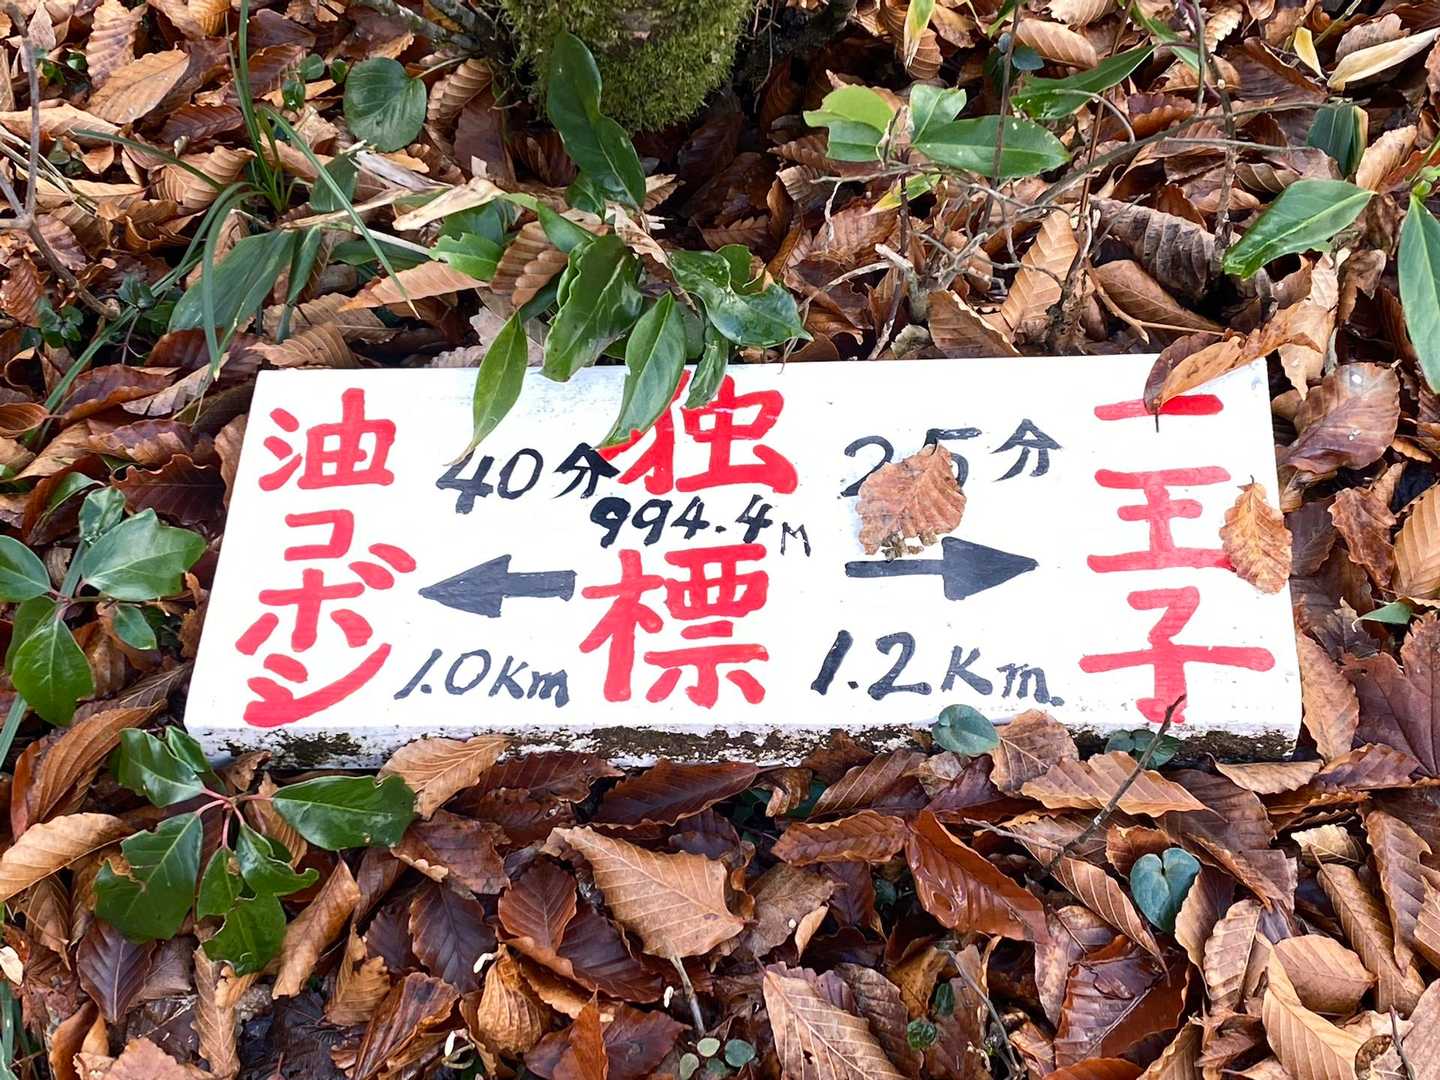 油コボシ
40分
1.0Km
独標
994.4M
25分
1.2Km.
一王子